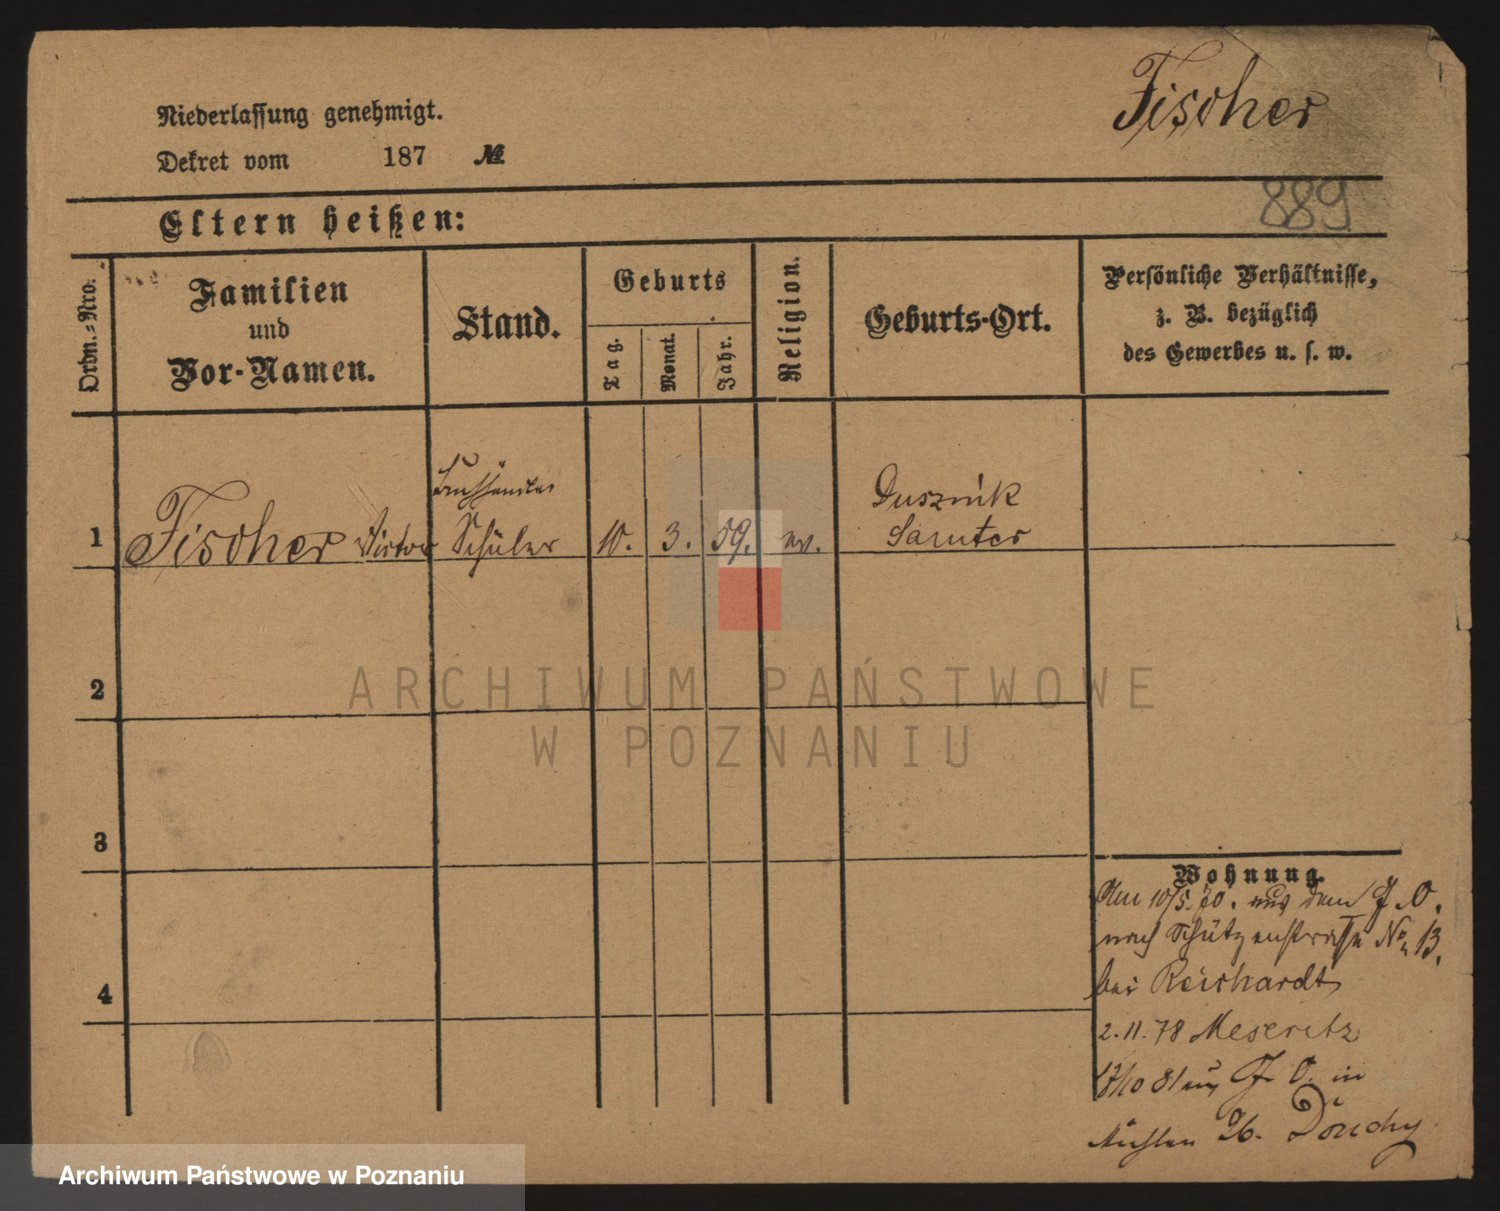 Fischer
Niederlassung genehmigt.
Dekret vom 187 №
889
Eltern heißen:
Ordn.=Nro.
Familien
und
Vor-Namen.
Stand.
Geburts
Tag.
Monat.
Jahr.
Religion.
Geburts-Ort.
Persönliche Verhältnisse,
z. B. bezüglich
des Gewerbes u. s. w.
1
Fischer Victor
Schüler
10.
3.
59.
ev.
Dusznik
Samter
2
ARCHIWUM PAŃSTWOWE
W POZNANIU
3
4
Wohnung.
Am 10/5. 70. aus dem J. O.
nach Schützenstraße No. 13.
bei Reichardt
2.11.78 Meseritz
81 J. O. in
Archiwum Państwowe w Poznaniu